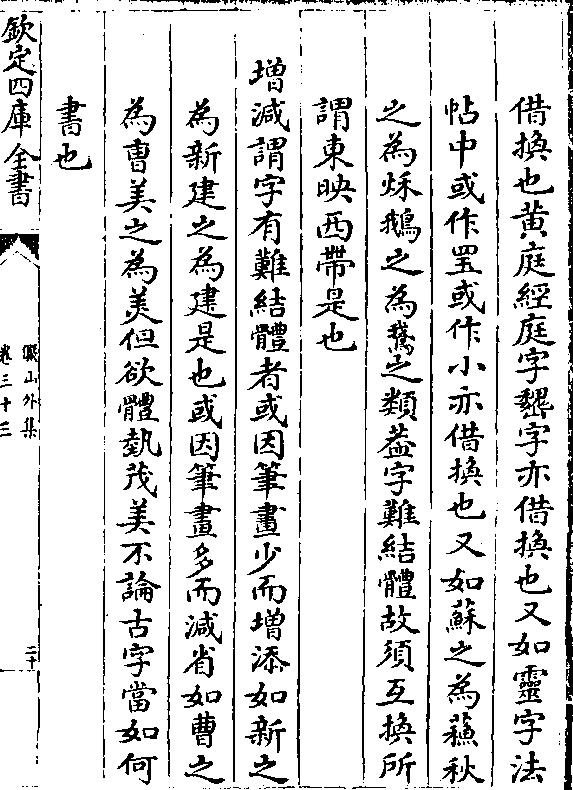 借換也黄庭經庭字字亦借換也又如靈字法
帖中或作或作小亦借換也又如蘇之為蘓秋
之為秌鵝之為鵞之類葢字難結體故須互換所
謂東映西帶是也
增減謂字有難結體者或因筆畫少而增添如新之
為新建之為建是也或因筆畫多而減省如曹之
為曺美之為羙但欲體勢茂美不論古字當如何
書也
欽定四庫全書
儼山外集
卷三十三
二十